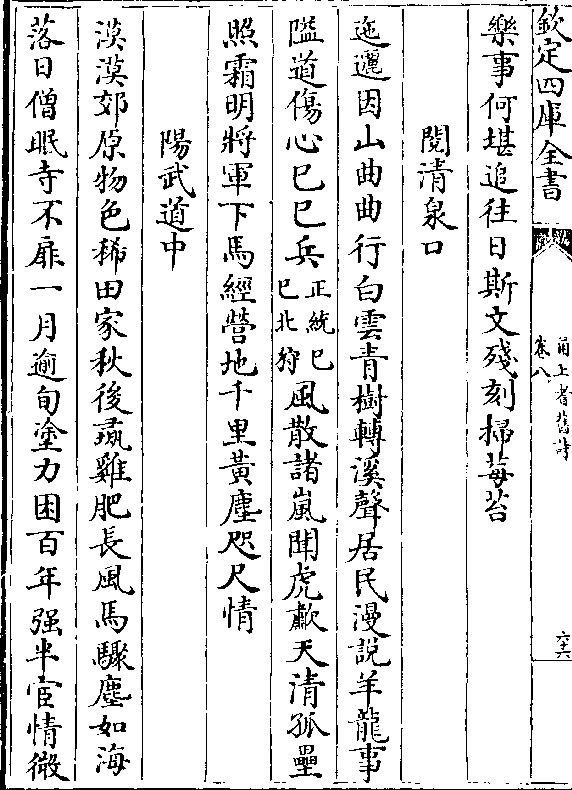 欽定四庫全書
甬上耆舊詩
卷八
樂事何堪追往日斯文殘刻掃莓苔
閱清泉口
迤邐因山曲曲行白雲青樹轉溪聲居民漫說羊龍事
隘道傷心巳巳兵正統巳巳北狩風散諸嵐聞虎歗天清孤壘
照霜明將軍下馬經營地千里黃塵咫尺情
陽武道中
漠漠郊原物色稀田家秋後彘雞肥長風馬驟塵如海
落日僧眠寺不扉一月逾旬塗力困百年强半宦情微